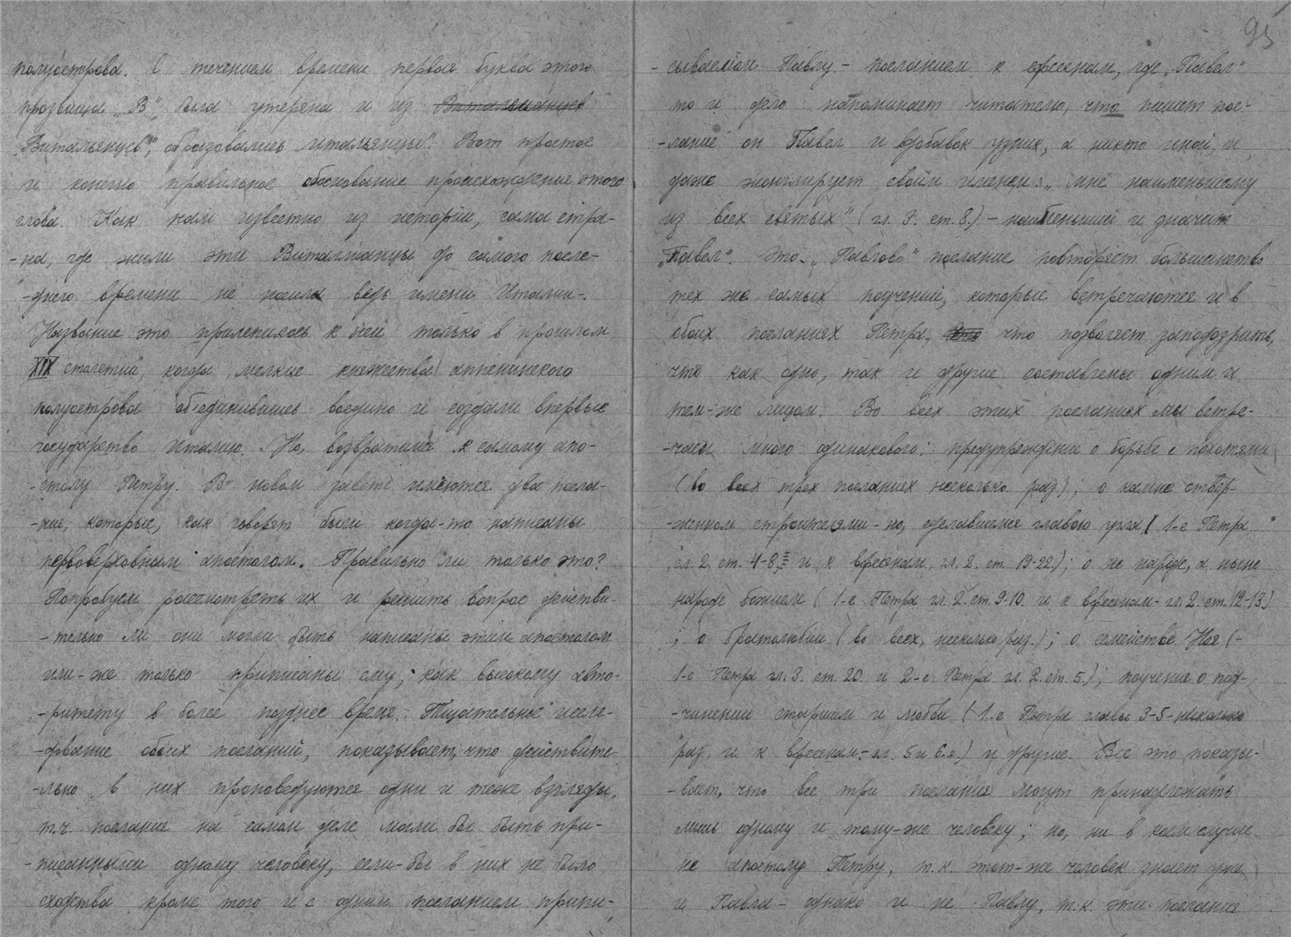 полуострова. С течением времени первая буква этого
прозвища „В“, была утеряна и из Витальянцев
„Витальянусъ“, образовались итальянцы“. Вот простое
и конечно правильное обоснование происхождения этого
слова. Как нам известно из истории, сама стра-
-на, где жили эти Виталианцы до самого после-
-днего времени не носила ведь имени Италии.
Название это прилепилось к ней только в прошлом
XIX столетии, когда мелкие княжества аппенинского
полуострова объединившись воедино и создали впервые
государство Италию. Но, возвратимся к самому апо-
-столу Петру. В новом завете имеются два посла-
-ния, которые, как говорят были когда-то написаны
первоверховным апостолом. Правильно ли только это?
Попробуем рассмотреть их и решить вопрос действи-
-тельно ли они могли быть написаны этим апостолом
или-же только приписаны ему, как высокому авто-
-ритету в более позднее время. Тщательное иссле-
-дование обоих посланий, показывает, что действите-
-льно в них проповедуются одни и теже взгляды,
т.ч. послания на самом деле могли бы быть при-
-писанными одному человеку, если-бы в них не было
сходства кроме того и с одним посланием припи-
95
-сываемым Павлу - посланием к ефесеянам, где „Павел“
то и дело напоминает читателю, что пишет пос-
-лание он Павел и вдобавок узник, а никто иной, и
даже жонглирует своим именем: „мне наименьшему
из всех святых“ (гл. 3. ст. 8.) - наименьший и значит
„Павел“. Это „Павлово“ послание повторяет большинство
тех же самых поучений, которые встречаются и в
обоих посланиях Петра, что позволяет заподозрить,
что как одно, так и другие составлены одним и
тем-же лицом. Во всех этих посланиях мы встре-
-чаем много одинакового: предупреждение о борьбе с похотями
(во всех трех посланиях несколько раз); о камне отвер-
-женном строителями - но, сделавшимся главою угла (1-е Петра
гл. 2. ст. 4-8, и к ефесеянам, гл. 2. ст. 19-22); о не народе, а ныне
народе божием (1-е Петра гл. 2. ст. 9-10. и к ефесеянам - гл. 2. ст. 12-13)
; о братолюбии (во всех, несколько раз.); о семействе Ноя (-
1-е Петра гл. 3. ст. 20. и 2-е Петра гл. 2. ст. 5.); поучения о под-
-чинении старшим и любви (1-е Петра главы 3-5-несколько
раз, и к ефесеянам - гл. 5 и 6-я.) и другие. Все это показы-
-вает, что все три послания могут принадлежать
лишь одному и тому-же человеку; но, ни в коем случае
не апостолу Петру, т.к. этот-же человек знает уже
и Павла - однако и не Павлу, т.к. эти послания